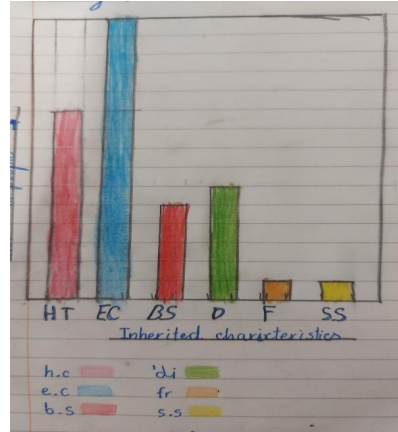 HT EC BS D F SS
Inherited charicteristics
h.c 'di
e.c fr
b.s s.s